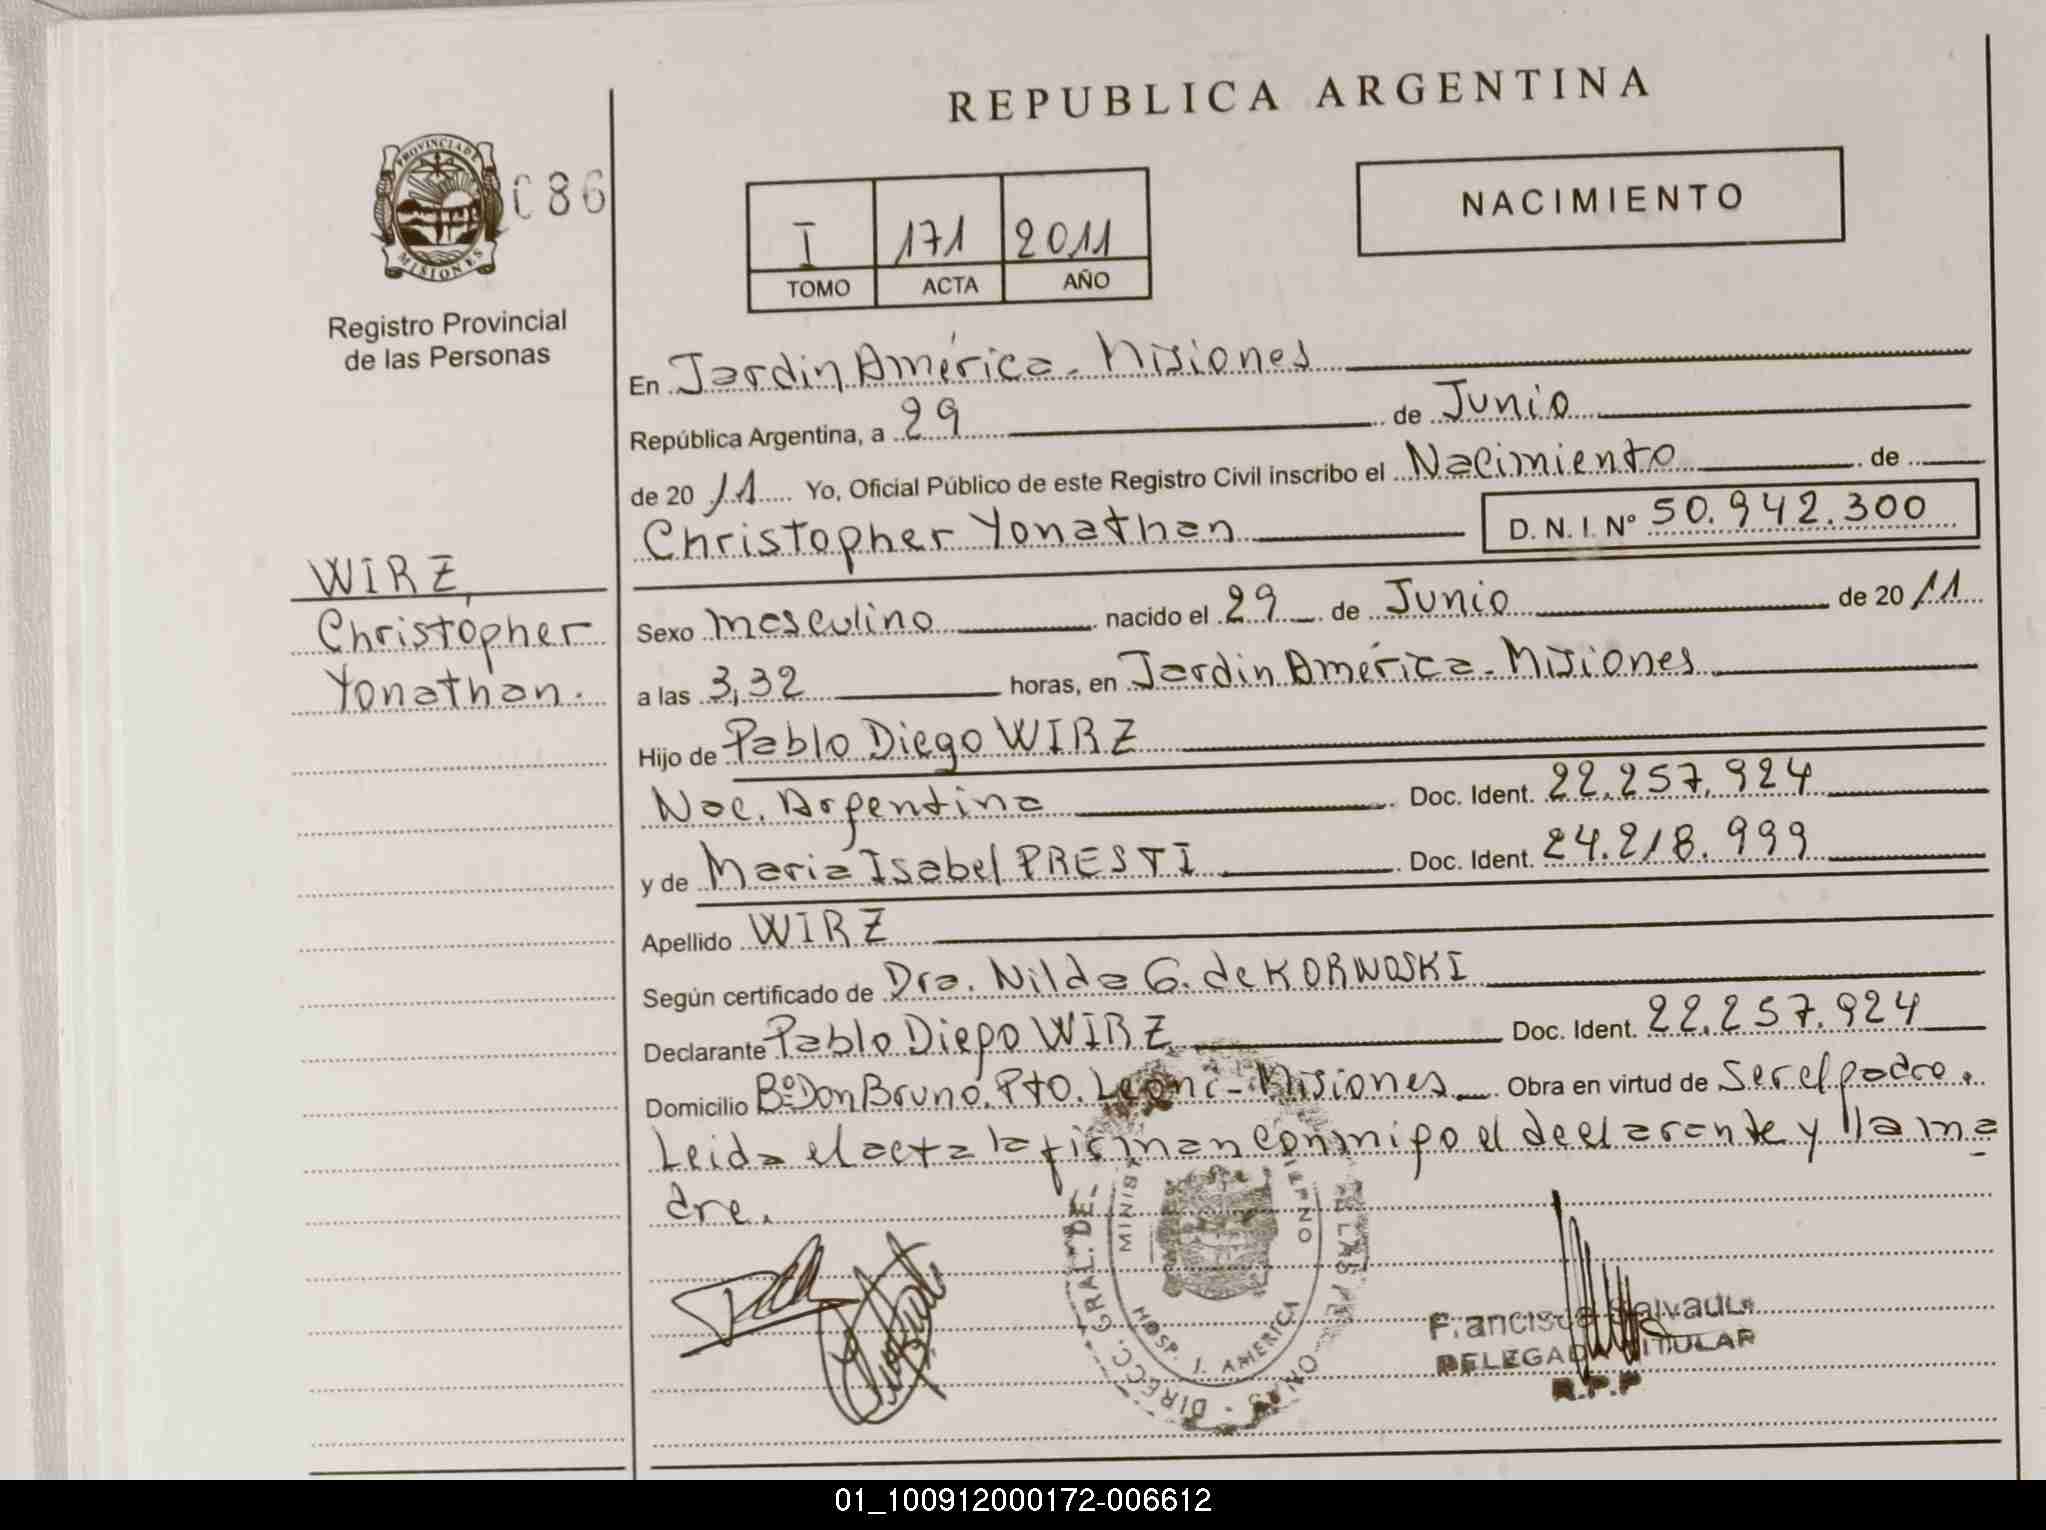 REPUBLICA ARGENTINA
PROVINCIA DE
MISIONES
086
NACIMIENTO
I 171 2011
TOMO ACTA AÑO
Registro Provincial
de las Personas
En Jardin América - Misiones
República Argentina, a 29 de Junio
de 2011 Yo, Oficial Público de este Registro Civil inscribo el Nacimiento de
Christopher Yonathan D. N. I. Nº 50.942.300
WIRZ,
Christopher
Yonathan.
Sexo masculino nacido el 29 de Junio de 2011
a las 3,32 horas, en Jardin América - Misiones
Hijo de Pablo Diego WIRZ
Nac. Argentina Doc. Ident. 22.257.924
y de Maria Isabel PRESTI Doc. Ident. 24.218.999
Apellido WIRZ
Según certificado de Dra. Nilda G. de KORNOSKI
Declarante Pablo Diego WIRZ Doc. Ident. 22.257.924
Domicilio Bº Don Bruno. Pto. Leoni - Misiones Obra en virtud de Ser el padre.
Leida el acta la firman conmigo el declarante y lla ma
dre.
DIRECC. GRAL. DE
HOSP. J. AMERICA
Francisca
DELEGADA TITULAR
R.P.P
01_100912000172-006612